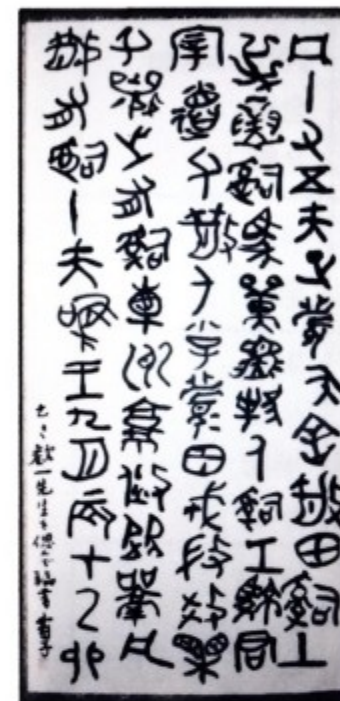 凡十又五夫正眉矢舍散田司土
屰寅司馬單堒邦人司工駷君
宰德父散人小子眉田戎微父效果
父襄之有司橐州就焂從鬲凡
散有司十夫唯王九月辰才乙卯
先生を偲んで臨書